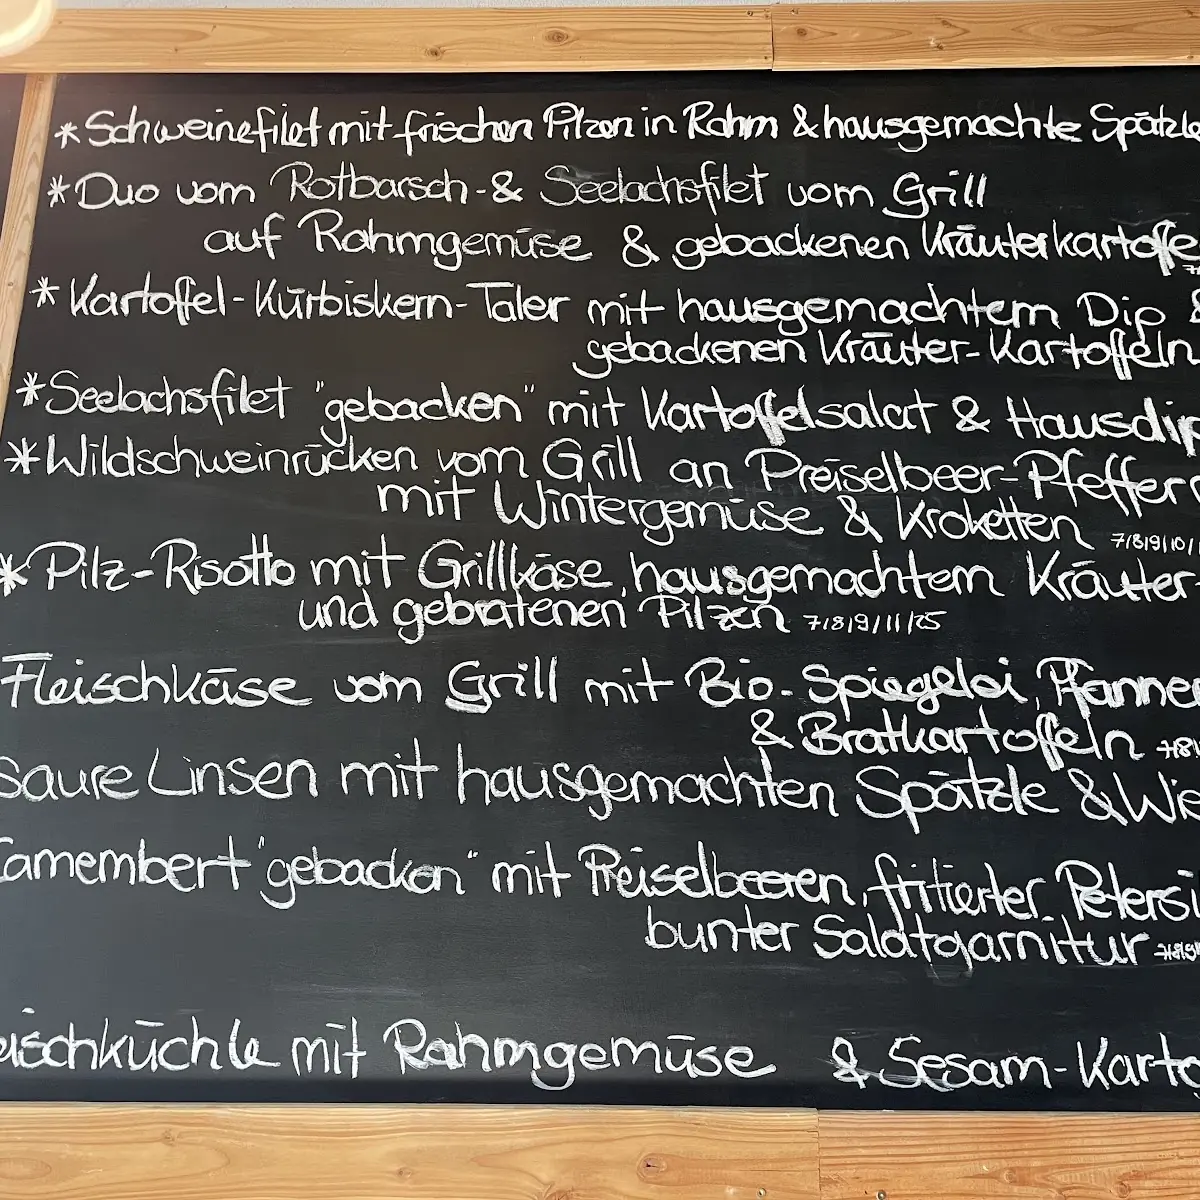 *Schweinefilet mit frischen Pilzen in Rahm & hausgemachte Spätzle
*Duo vom Rotbarsch-& Seelachsfilet vom Grill
auf Rahmgemüse & gebackenen Kräuterkartoffe
*Kartoffel-Kürbiskern-Taler mit hausgemachtem Dip &
gebackenen Kräuter-Kartoffeln
*Seelachsfilet "gebacken" mit Kartoffelsalat & Hausdip
*Wildschweinrücken vom Grill an Preiselbeer-Pfeffer
mit Wintergemüse & Kroketten 7/8/9/10/
*Pilz-Risotto mit Grillkäse, hausgemachtem Kräuter
und gebratenen Pilzen 7/8/9/11/25
Fleischkäse vom Grill mit Bio-Spiegelei, Pfannen
& Bratkartoffeln 7/8/
saure Linsen mit hausgemachten Spätzle & Wie
Camembert "gebacken" mit Preiselbeeren, fritierter Petersil
bunter Salatgarnitur 7/8/9/
eischküchle mit Rahmgemüse & Sesam-Karto